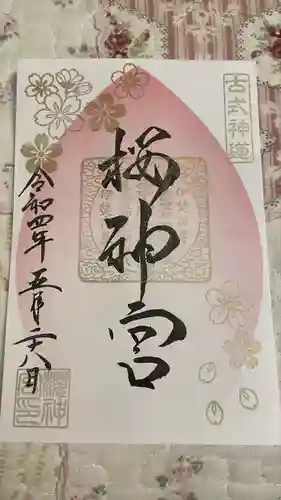 古式神道
桜神宮
令和四年五月二十八日